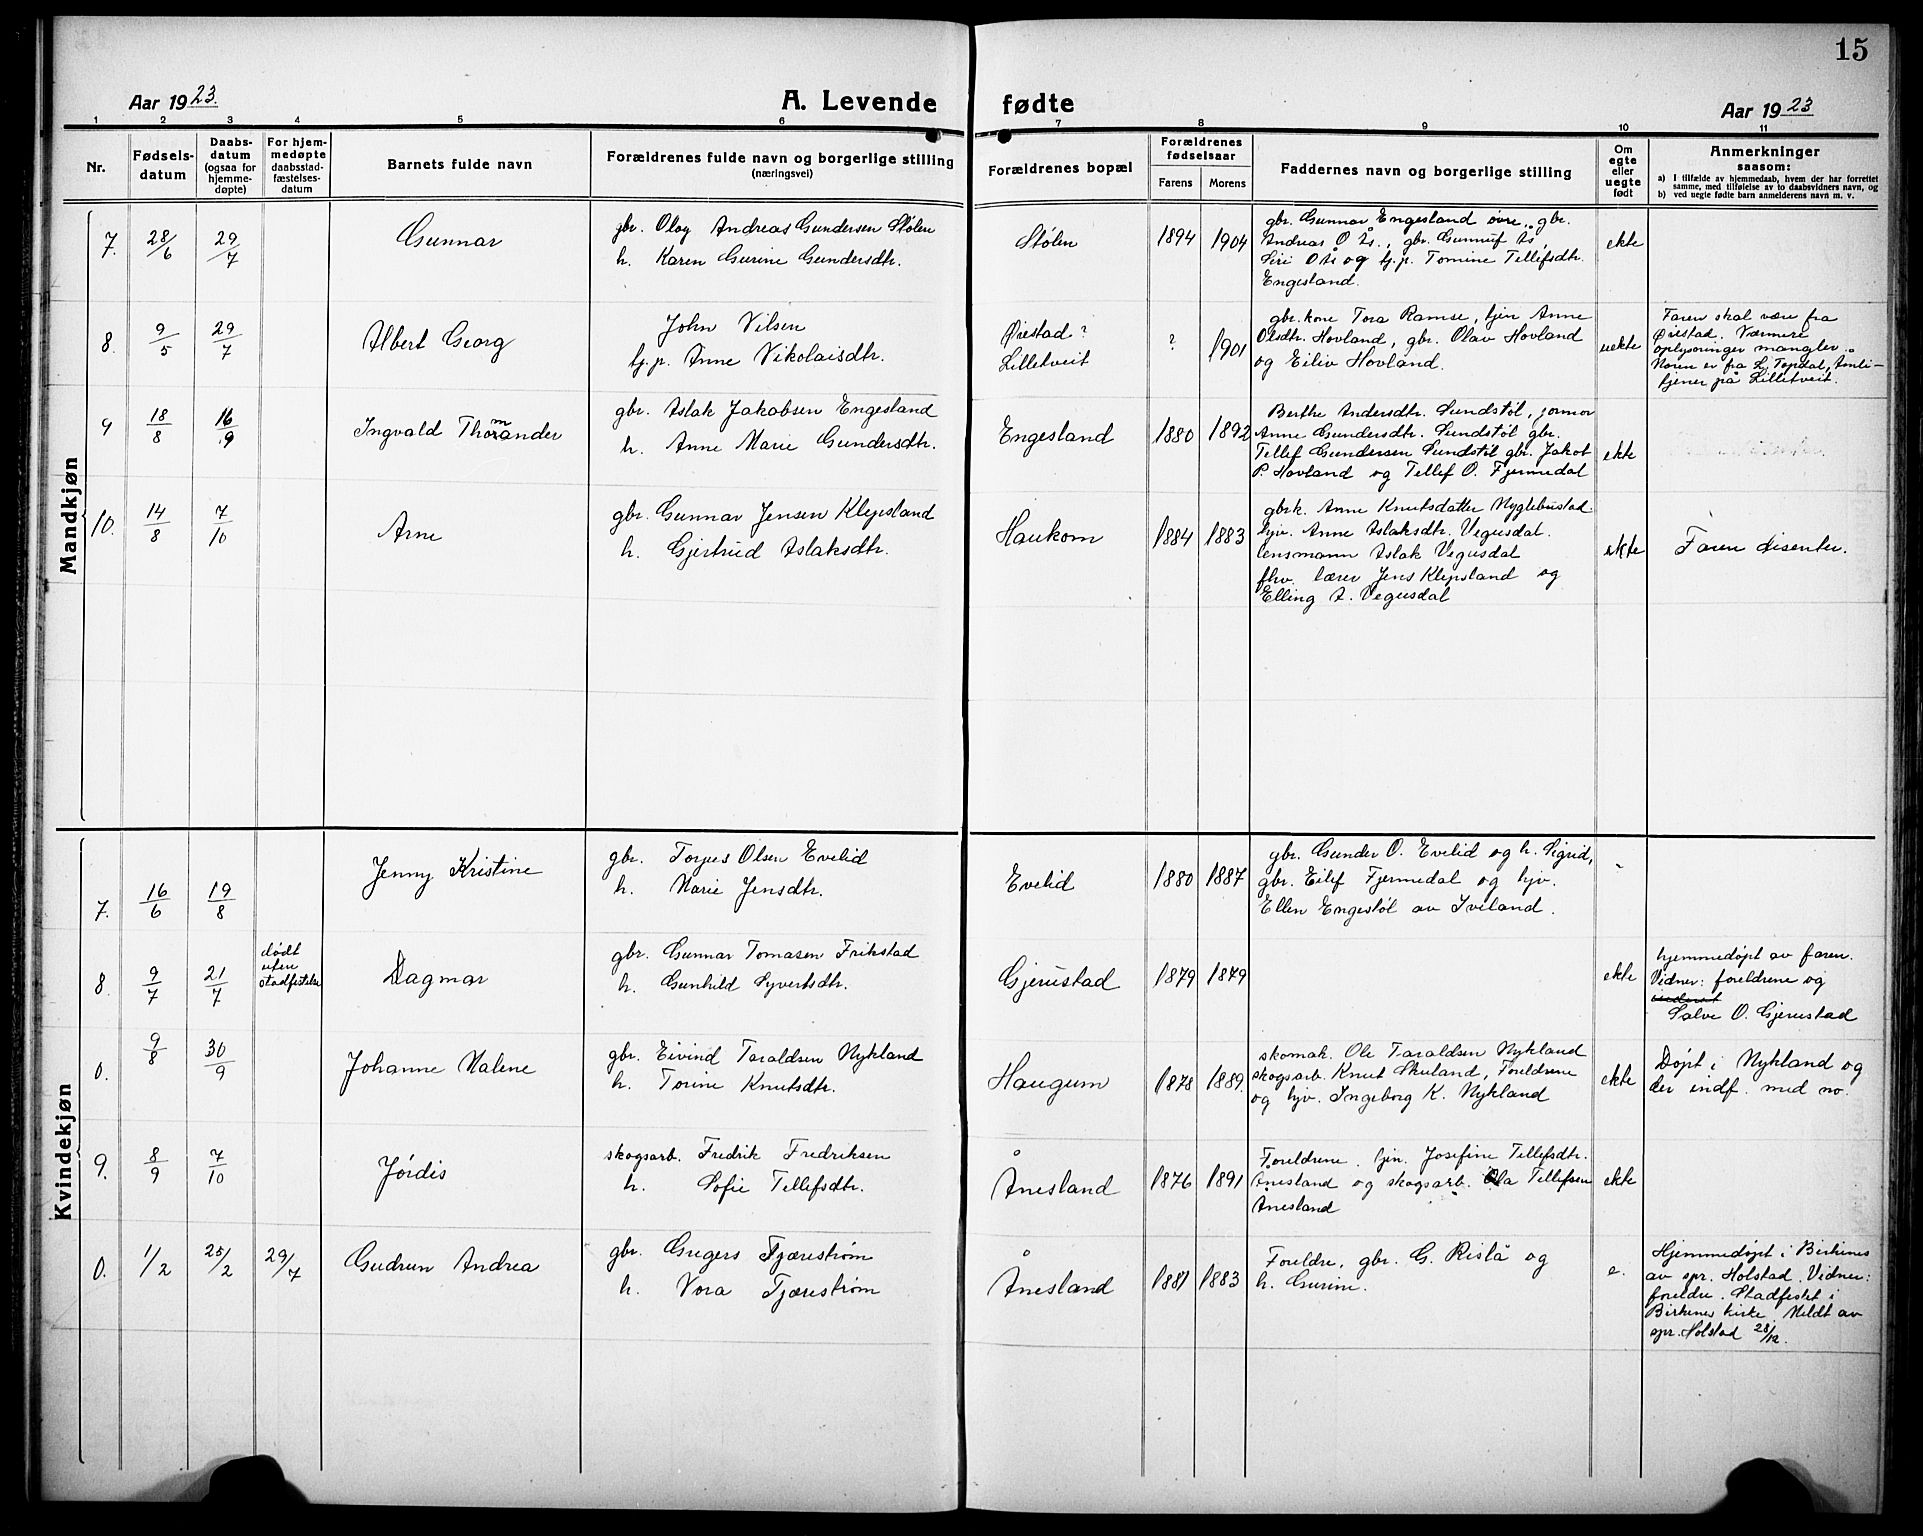 15
Aar 1923.
A. Levende fødte
Aar 1923
1 2 3 4 5 6 7 8 9 10 11
Nr.
Fødsels-
datum
Daabs-
datum
(ogsaa for
hjemme-
døpte)
For hjem-
medøpte
daabsstad-
fæstelses-
datum
Barnets fulde navn
Forældrenes fulde navn og borgerlige stilling
(næringsvei)
Forældrenes bopæl
Forældrenes
fødselsaar
Farens Morens
Faddernes navn og borgerlige stilling
Om
egte
eller
uegte
født
Anmerkninger
saasom:
a) I tilfælde av hjemmedaab, hvem der har forrettet
samme, med tilføielse av to daabsvidners navn, og
b) ved uegte fødte barn anmelderens navn m. v.
Mandkjøn
7. 28/6 29/7 Gunnar
gbr. Olav Andreas Gundersen Stølen
h. Karen Gurine Gundersdtr.
Stølen 1894 1904
gbr. Gunnar Engesland øvre, gbr.
Andreas O Ås., gbr. Gunnuf Ås,
Siri O Ås og tj.p. Tomine Tellefsdtr.
Engesland.
ekte
8. 9/5 29/7 Albert Georg
John Nilsen
tj.p. Anne Nikolaisdtr.
Øiestad?
Lilletveit
? 1901
gbr. kone Tora Ramse, tjen Anne
Olsdtr. Hovland, gbr. Olav Hovland
og Eiliv Hovland.
uekte
Faren skal være fra
Øiestad. Nærmere
oplysninger mangler.
Moren er fra Topdal, Amli -
tjener på Lilletveit.
9 18/8 16/9 Ingvald Thormander
gbr. Aslak Jakobsen Engesland
h. Anne Marie Gundersdtr.
Engesland 1880 1892
Berthe Andersdtr. Sundstøl, jormor
Anne Gundersdtr. Sundstøl gbr.
Tellef Gundersen Sundstøl gbr. Jakob
P. Hovland og Tellef O. Fjermedal
ekte
10. 14/8 7/10 Arne
gbr. Gunnar Jensen Klepsland
h. Gjertrud Aslaksdtr.
Haukom 1884 1883
gbrk. Anne Knutsdatter Myglebustad
hjv. Anne Aslaksdtr. Vegusdal.
lensmann Aslak Vegusdal
fhv. lærer Jens Klepsland og
Elling A. Vegusdal
ekte
Faren disenter.
Kvindekjøn
7. 16/6 19/8 Jenny Kristine
gbr. Torjus Olsen Evelid
h. Marie Jensdtr.
Evelid 1880 1887
gbr. Gunder O. Evelid og h. Sigrid,
gbr. Eilef Fjermedal og hjv.
Ellen Engestøl av Iveland.
-
8. 9/7 21/7
dødt
uten
stadfestelse
Dagmar
gbr. Gunnar Tomasen Frikstad
h. Gunhild Syvertsdtr.
Gjerustad 1879 1879
ekte
hjemmedøpt av faren.
Vidner: foreldrene og
Salve O. Gjerustad
0. 9/8 30/9 Johanne Malene
gbr. Eivind Taraldsen Nykland
h. Torine Knutsdtr.
Haugum 1878 1889.
skomak. Ole Taraldsen Nykland
skogsarb. Knut Skuland, Foreldrene
og hjv. Ingeborg K. Nykland
ekte
Døpt i Nykland og
der indf. med no.
9. 8/9 7/10 Jórdis
skogsarb. Fredrik Fredriksen
h. Sofie Tellefsdtr.
Ånesland 1876 1891
Foreldrene. tjen. Josefine Tellefsdtr.
Ånesland og skogsarb. Ola Tellefsen
Ånesland
ekte
0. 1/2 25/2 29/7 Gudrun Andrea
gbr. Gregers Tjærestrøm
h. Nora Tjærestrøm
Ånesland 1881 1883
Foreldre, gbr. G. Rislå og
h. Gurine.
e.
Hjemmedøpt i Birkenes
av spr. Holstad. Vidner:
foreldre. Stadfestet i
Birkenes kirke. Meldt av
spr. Holstad 28/12.